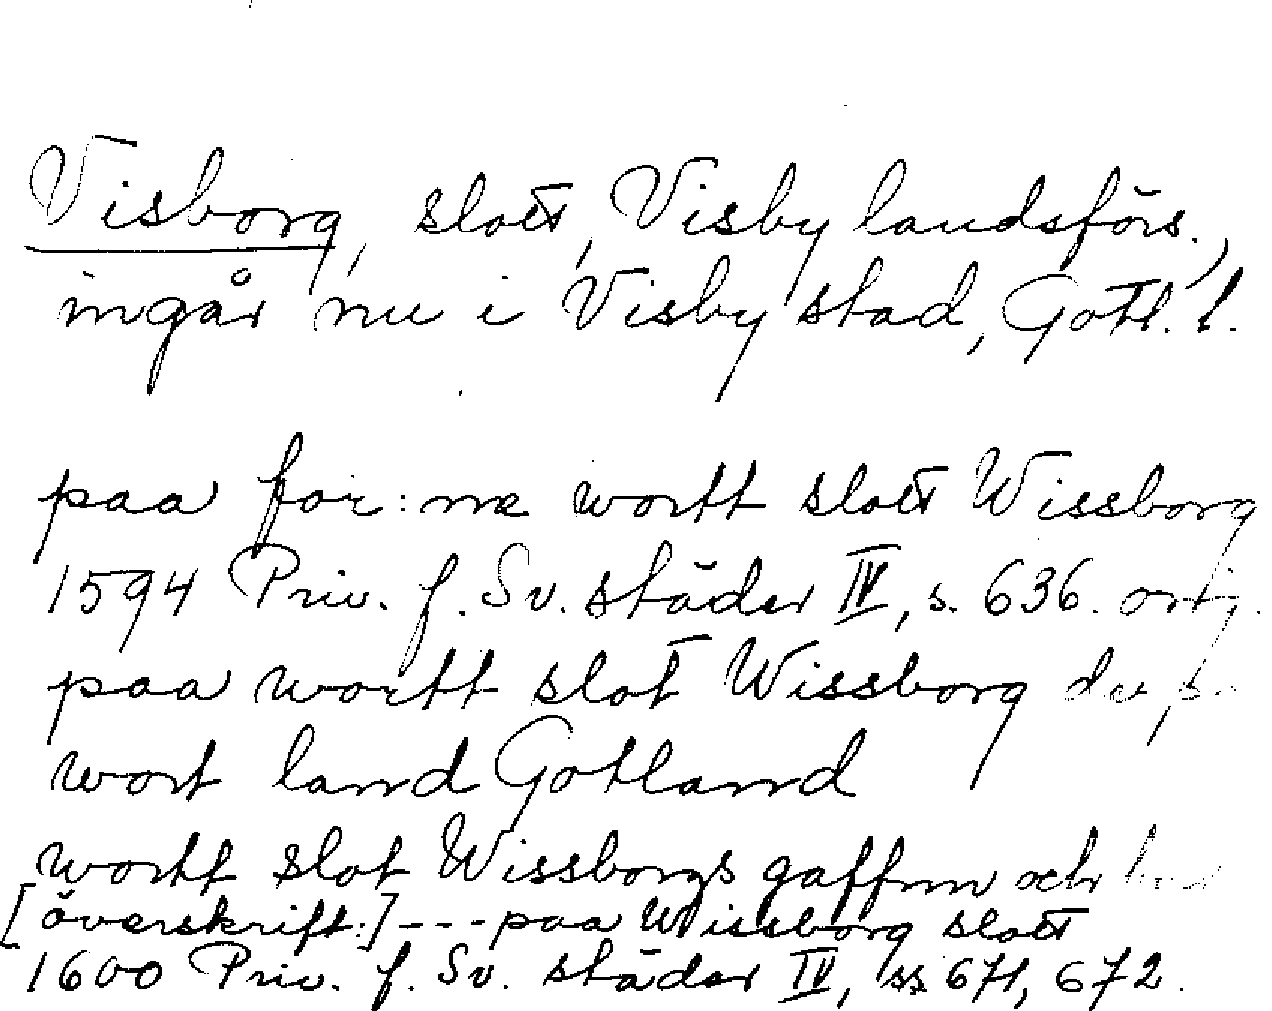 Visborg, slott, Visby landsförs.,
ingår nu i Visby stad, Gotl. l.
paa for:næ wortt slott Wissborg
1594 Priv. f. Sv. städer IV, s. 636. orig.
paa wortt slot Wissborg
wort land Gotland
wortt slot Wissborgs gaffnn och
[överskrift:] --- paa Wissborg slott
1600 Priv. f. Sv. städer IV, ss 671, 672.